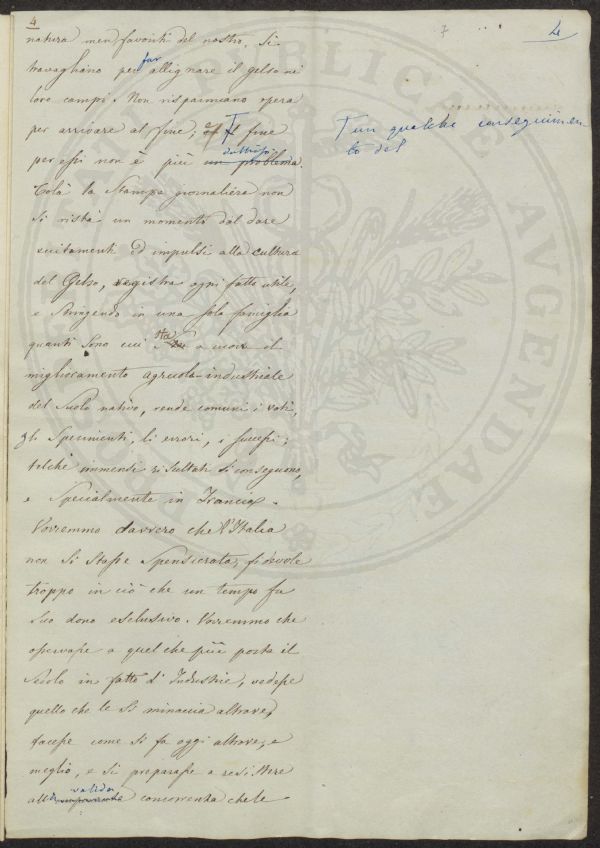 4
7
4
natura men favoriti del nostro, si
travagliano per far allignare il gelso ne
loro campi. Non risparmiano opera
per arrivare al fine; ed il fine
per essi non è più un problema. dubbioso
T un qualche conseguimen
to del
Colà la Stampa giornaliera non
si ristà un momento dal dare
eccitamenti ed impulsi alla cultura
del Gelso, registra ogni fatto utile,
e stringendo in una sola famiglia
quanti sono cui sta a cuore il
miglioramento agricolo-industriale
del suolo nativo, rende comuni i voti,
gli Sperimenti, li errori, i successi;
talchè immensi risultati si conseguono,
e Specialmente in Francia.
Vorremmo davvero che l'Italia
non si stasse Spensierata, fidevole
troppo in ciò che un tempo fu
suo dono esclusivo. Vorremmo che
operasse a quel che più porta il
Secolo in fatto d'Industrie, vedesse
quello che le si minaccia altrove,
facesse come si fa oggi altrove, e
meglio, e si preparasse a resistere
alla valida concorrenza che le
PUBLICAE
AVGENDAE